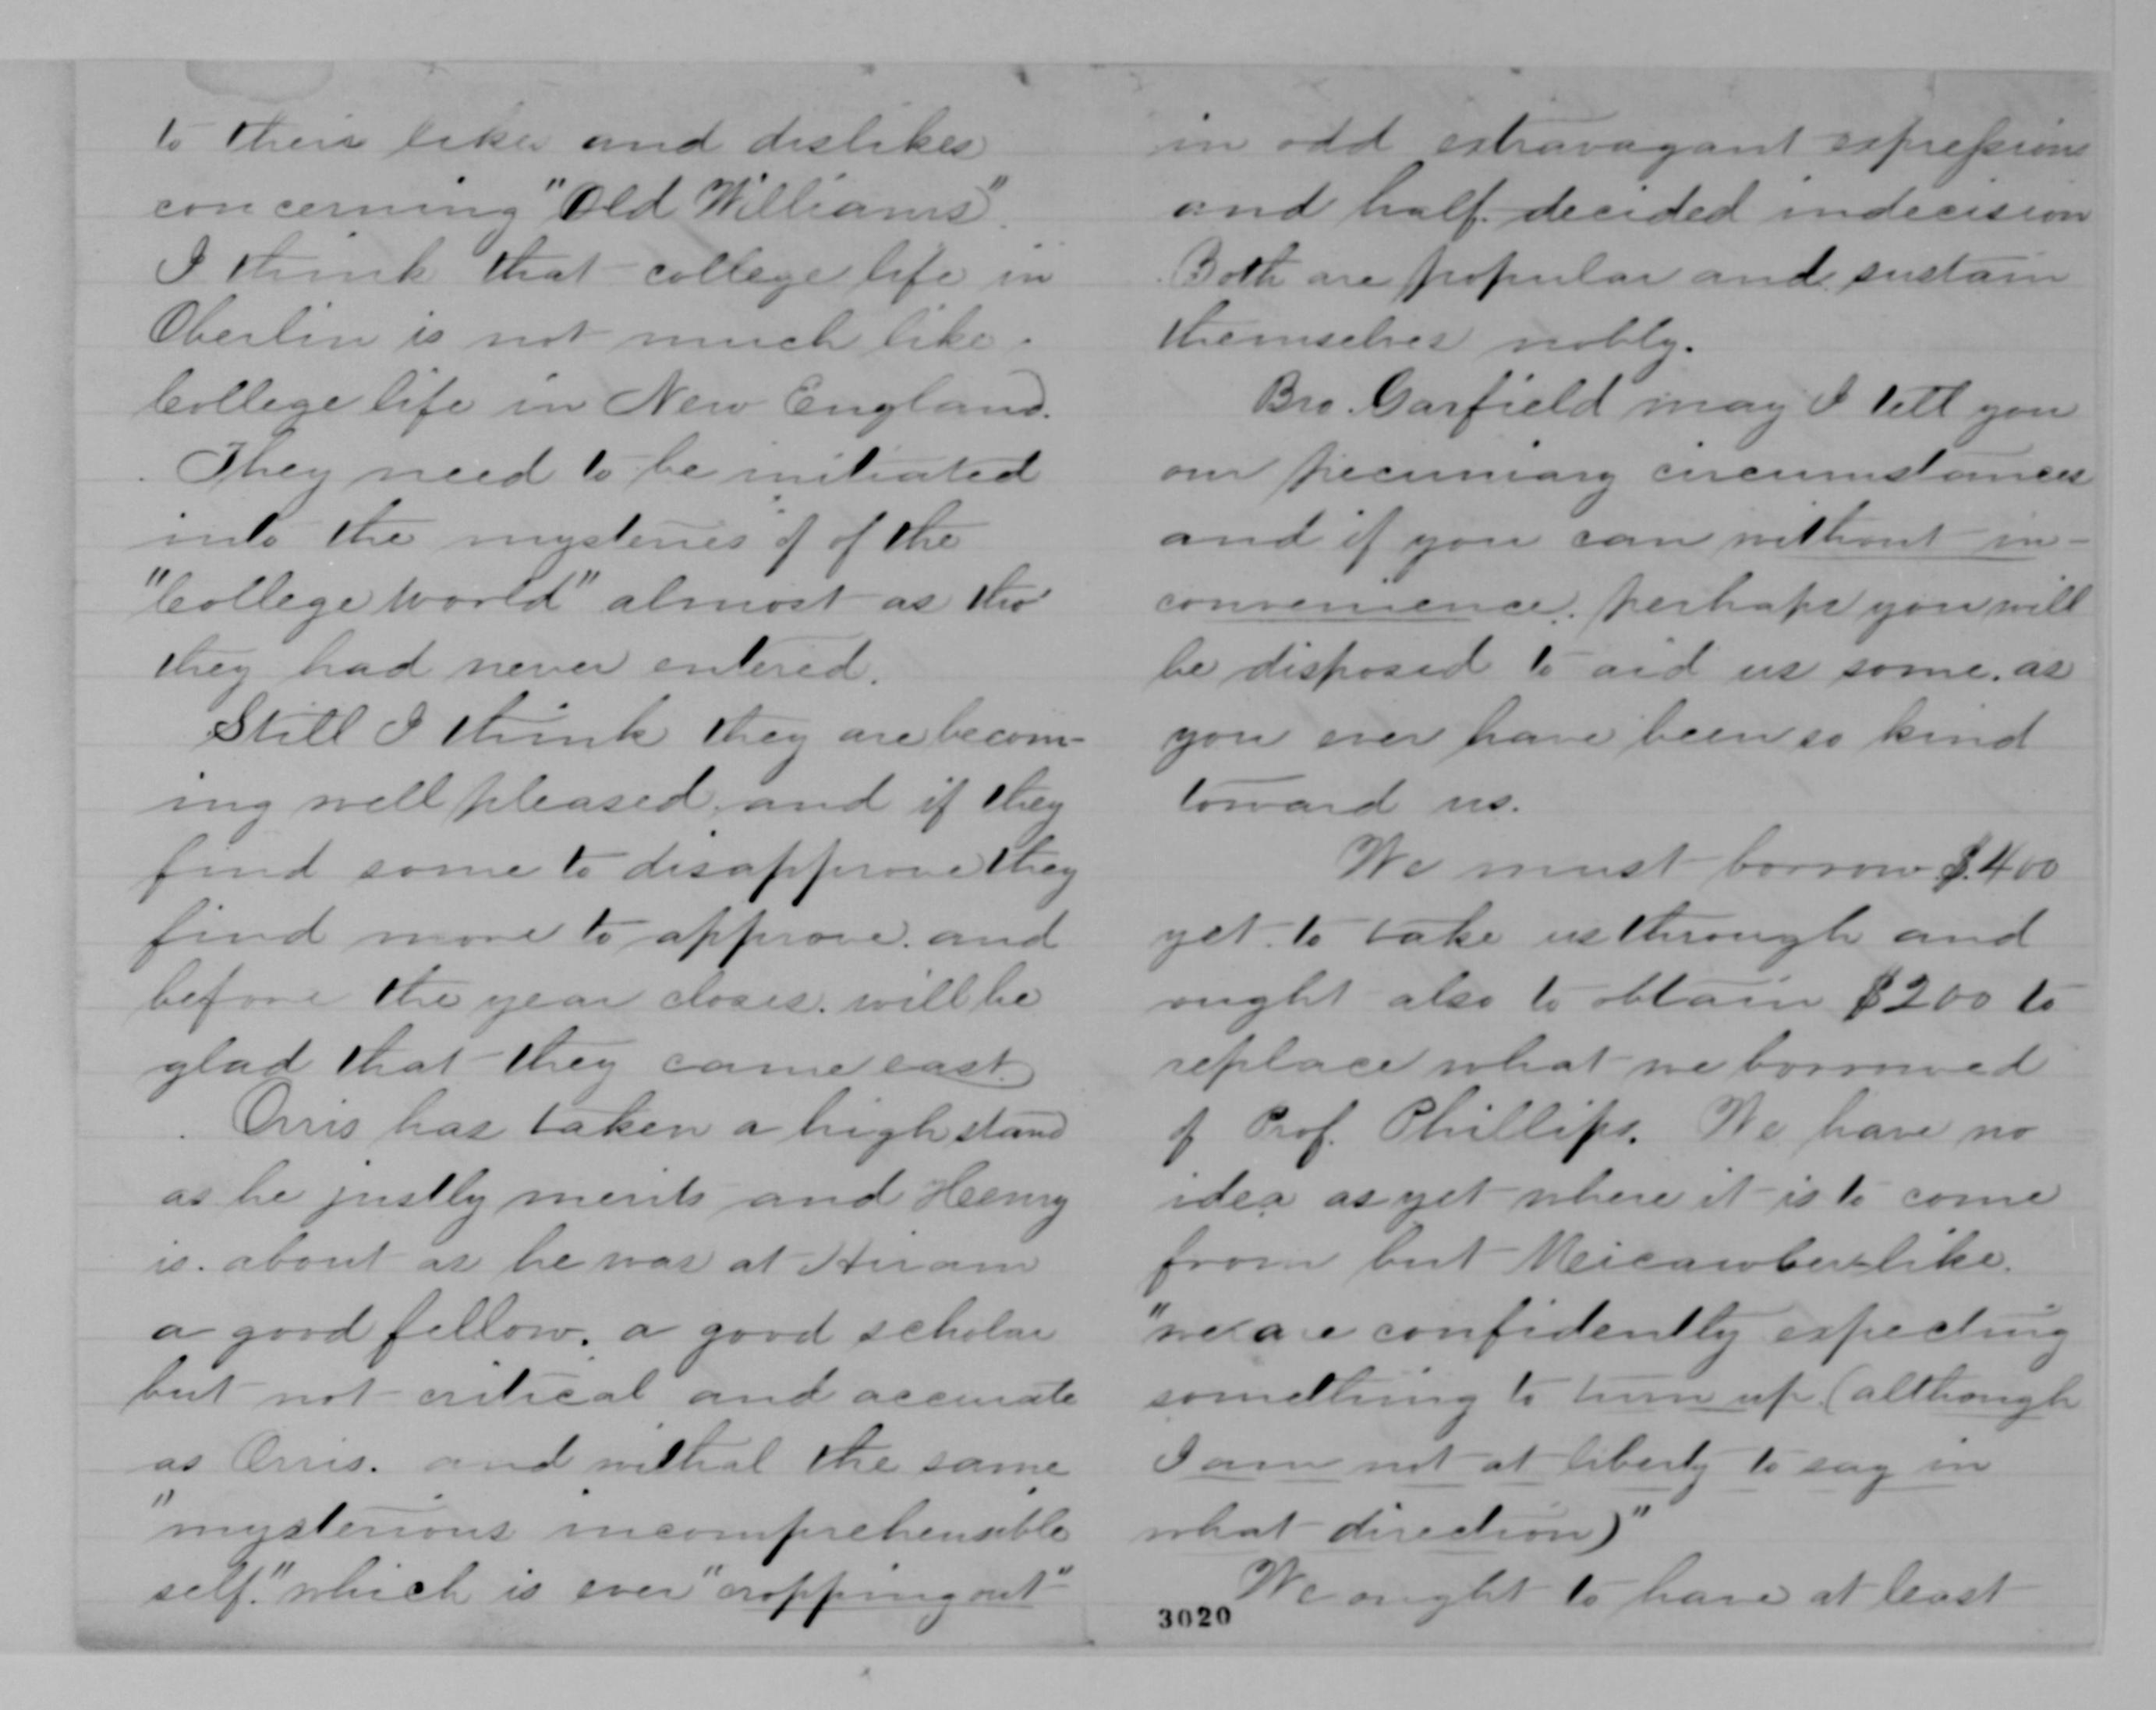 to their likes and dislikes
concerning "Old Williams".
I think that college life in
Oberlin is not much like
College life in New England.
They need to be initiated
into the mysteries of of the
"College world" almost as tho'
they had never entered.
Still I think they are becom-
ing well pleased, and if they
find some to disapprove they
find more to approve. and
before the year closes. will be
glad that they came east.
Orris has taken a high stand
as he justly merits and Henry
is. about as he was at Hiram
a good fellow. a good scholar
but not critical and accurate
as Orris. and withal the same
"mysterious incomprehensible
self." which is ever "cropping out"
in odd extravagant expressions
and half-decided indecision
Both are popular and sustain
themselves nobly.
Bro. Garfield may I tell you
our pecuniary circumstances
and if you can without in-
convenience. perhaps you will
be disposed to aid us some. as
you ever have been so kind
toward us.
We must borrow $.400
yet to take us through and
ought also to obtain $200 to
replace what we borrowed
of Prof. Phillips. We have no
idea as yet where it is to come
from but Meicawber-like.
"we are confidently expecting
something to turn up. (although
I am not at liberty to say in
what direction)"
We ought to have at least
3020